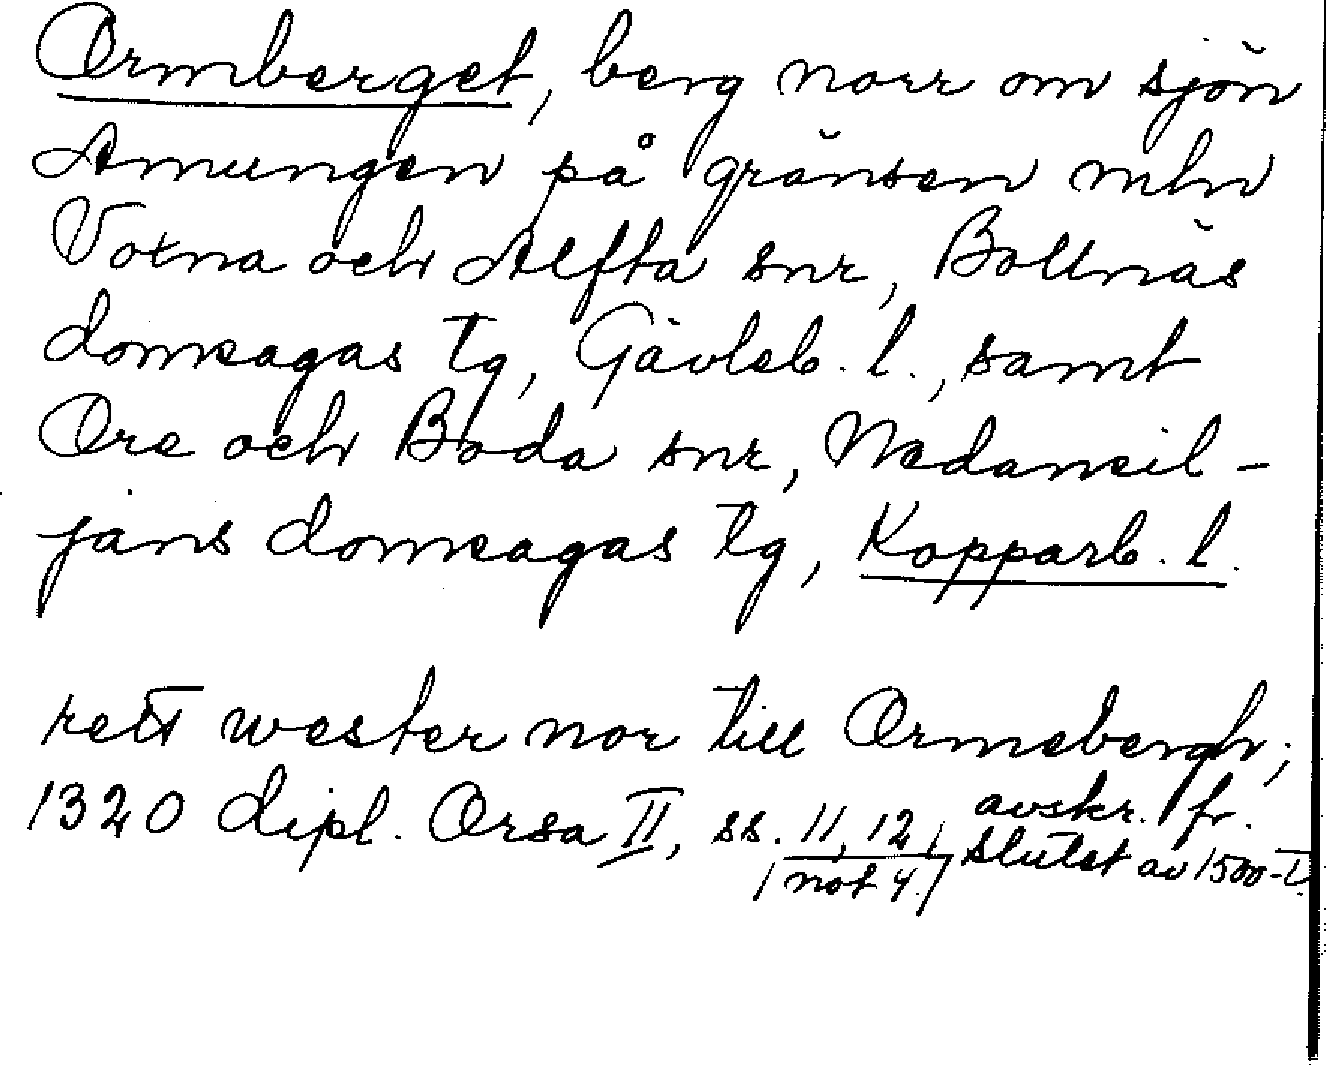 Ormberget, berg norr om sjön
Amungen på gränsen mln
Voxna och Alfta snr, Bollnäs
domsagas tg, Gävleb. l., samt
Ore och Boda snr, Nedansil-
jans domsagas tg, Kopparb. l.
rett wester nor till Ormsbergh;
1320 dipl. Orsa II, ss. 11, 12, avskr. fr.
/not 4./ slutet av 1500-t.